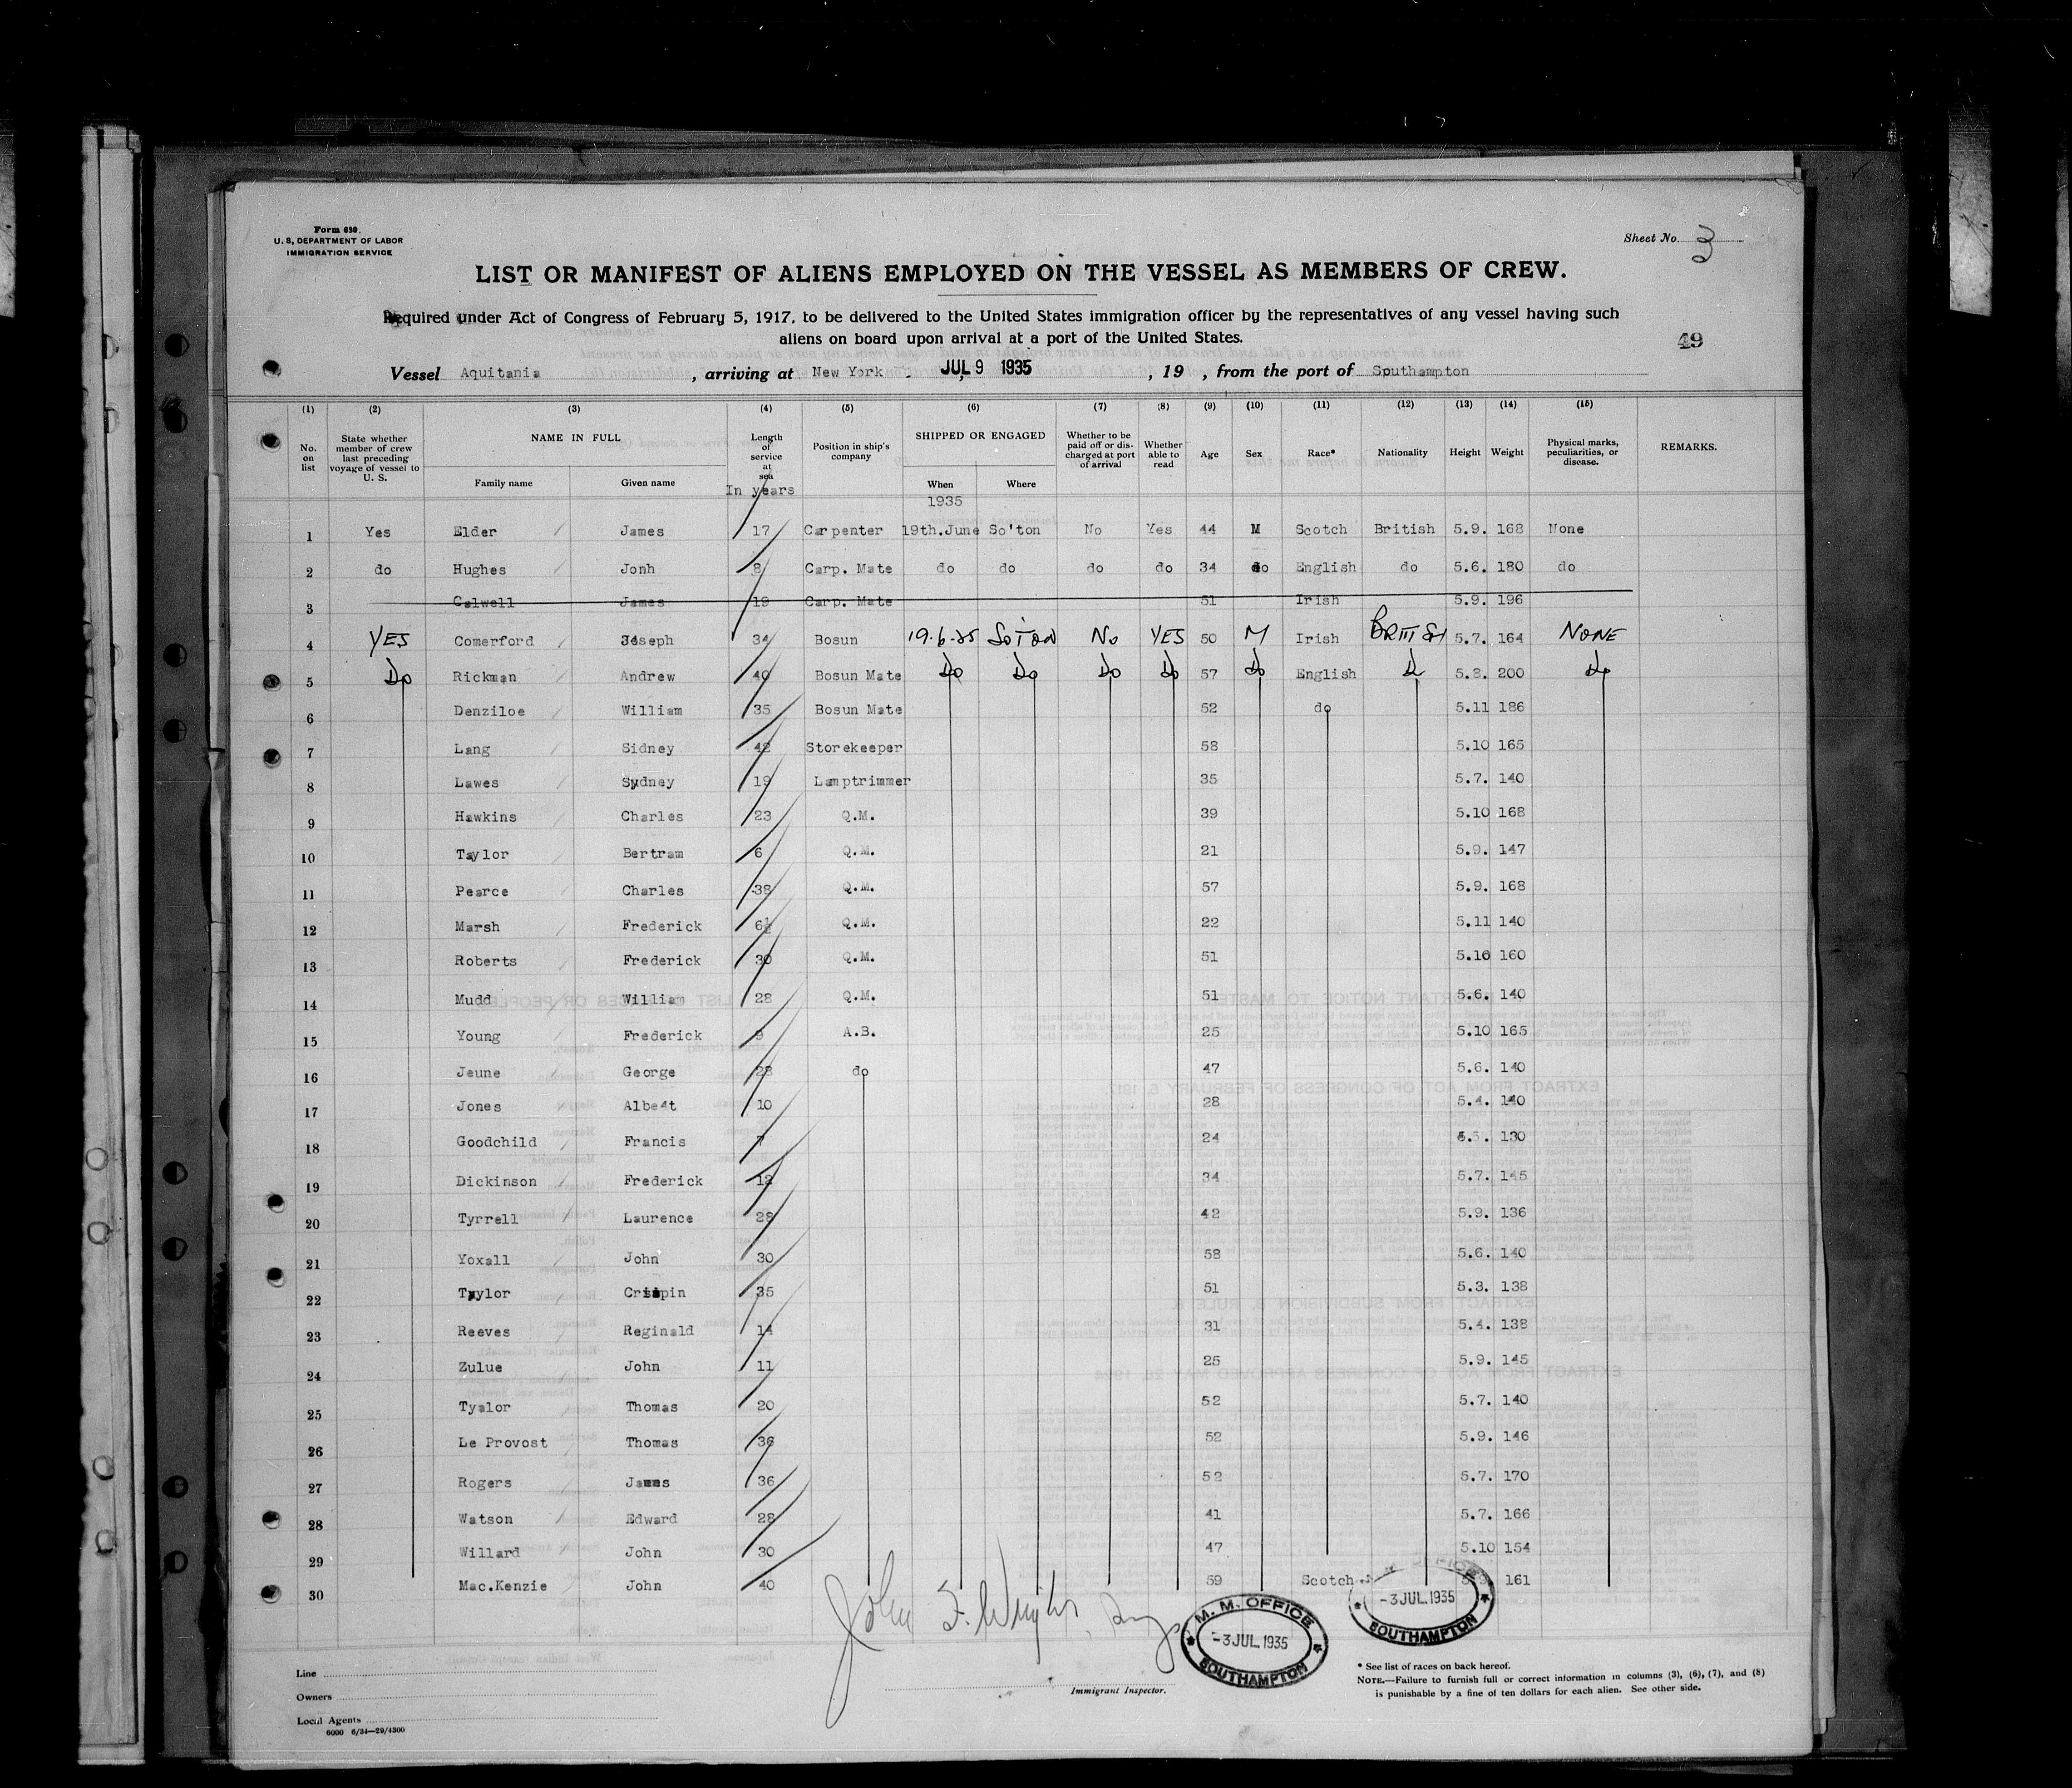 Form 630.
U. S. DEPARTMENT OF LABOR
IMMIGRATION SERVICE
Sheet No. 3
LIST OR MANIFEST OF ALIENS EMPLOYED ON THE VESSEL AS MEMBERS OF CREW.
Required under Act of Congress of February 5, 1917, to be delivered to the United States immigration officer by the representatives of any vessel having such
aliens on board upon arrival at a port of the United States.
49
Vessel Aquitania, arriving at New York JUL 9 1935, 19 , from the port of Southampton
(1) (2) (3) (4) (5) (6) (7) (8) (9) (10) (11) (12) (13) (14) (15)
No. on list State whether member of crew last preceding voyage of vessel to U. S. NAME IN FULL Family name Given name Length of service at sea In years Position in ship's company SHIPPED OR ENGAGED When Where Whether to be paid off or discharged at port of arrival Whether able to read Age Sex Race* Nationality Height Weight Physical marks, peculiarities, or disease. REMARKS.
1935
1 Yes Elder James 17 Carpenter 19th.June So'ton No Yes 44 M Scotch British 5.9. 168 None
2 do Hughes Jonh 8 Carp. Mate do do do do 34 do English do 5.6. 180 do
3 Calwell James 19 Carp. Mate 51 Irish 5.9. 196
4 YES Comerford Joseph 34 Bosun 19.6.35 SOTON No YES 50 M Irish BRITISH 5.7. 164 NONE
5 Do Rickman Andrew 40 Bosun Mate Do Do Do Do 57 Do English Do 5.8. 200 do
6 Denziloe William 35 Bosun Mate 52 do 5.11 186
7 Lang Sidney 42 Storekeeper 58 5.10 165
8 Lawes Sydney 19 Lamptrimmer 35 5.7. 140
9 Hawkins Charles 23 Q.M. 39 5.10 168
10 Taylor Bertram 6 Q.M. 21 5.9. 147
11 Pearce Charles 38 Q.M. 57 5.9. 168
12 Marsh Frederick 6½ Q.M. 22 5.11 140
13 Roberts Frederick 30 Q.M. 51 5.10 160
14 Mudd William 28 Q.M. 51 5.6. 140
15 Young Frederick 9 A.B. 25 5.10 165
16 Jeune George 28 do 47 5.6. 140
17 Jones Albert 10 28 5.4. 140
18 Goodchild Francis 7 24 5.5. 130
19 Dickinson Frederick 12 34 5.7. 145
20 Tyrrell Laurence 28 42 5.9. 136
21 Yoxall John 30 58 5.6. 140
22 Taylor Crispin 35 51 5.3. 138
23 Reeves Reginald 14 31 5.4. 138
24 Zulue John 11 25 5.9. 145
25 Tyalor Thomas 20 52 5.7. 140
26 Le Provost Thomas 36 52 5.9. 146
27 Rogers James 36 52 5.7. 170
28 Watson Edward 28 41 5.7. 166
29 Willard John 30 47 5.10 154
30 Mac.Kenzie John 40 59 Scotch 161
John F. Wright
M. M. OFFICE
-3 JUL.1935
SOUTHAMPTON
OFFICE
-3 JUL.1935
SOUTHAMPTON
Line
Owners
Local Agents
6000 6/34—29/4300
Immigrant Inspector.
* See list of races on back hereof.
NOTE.—Failure to furnish full or correct information in columns (3), (6), (7), and (8)
is punishable by a fine of ten dollars for each alien. See other side.